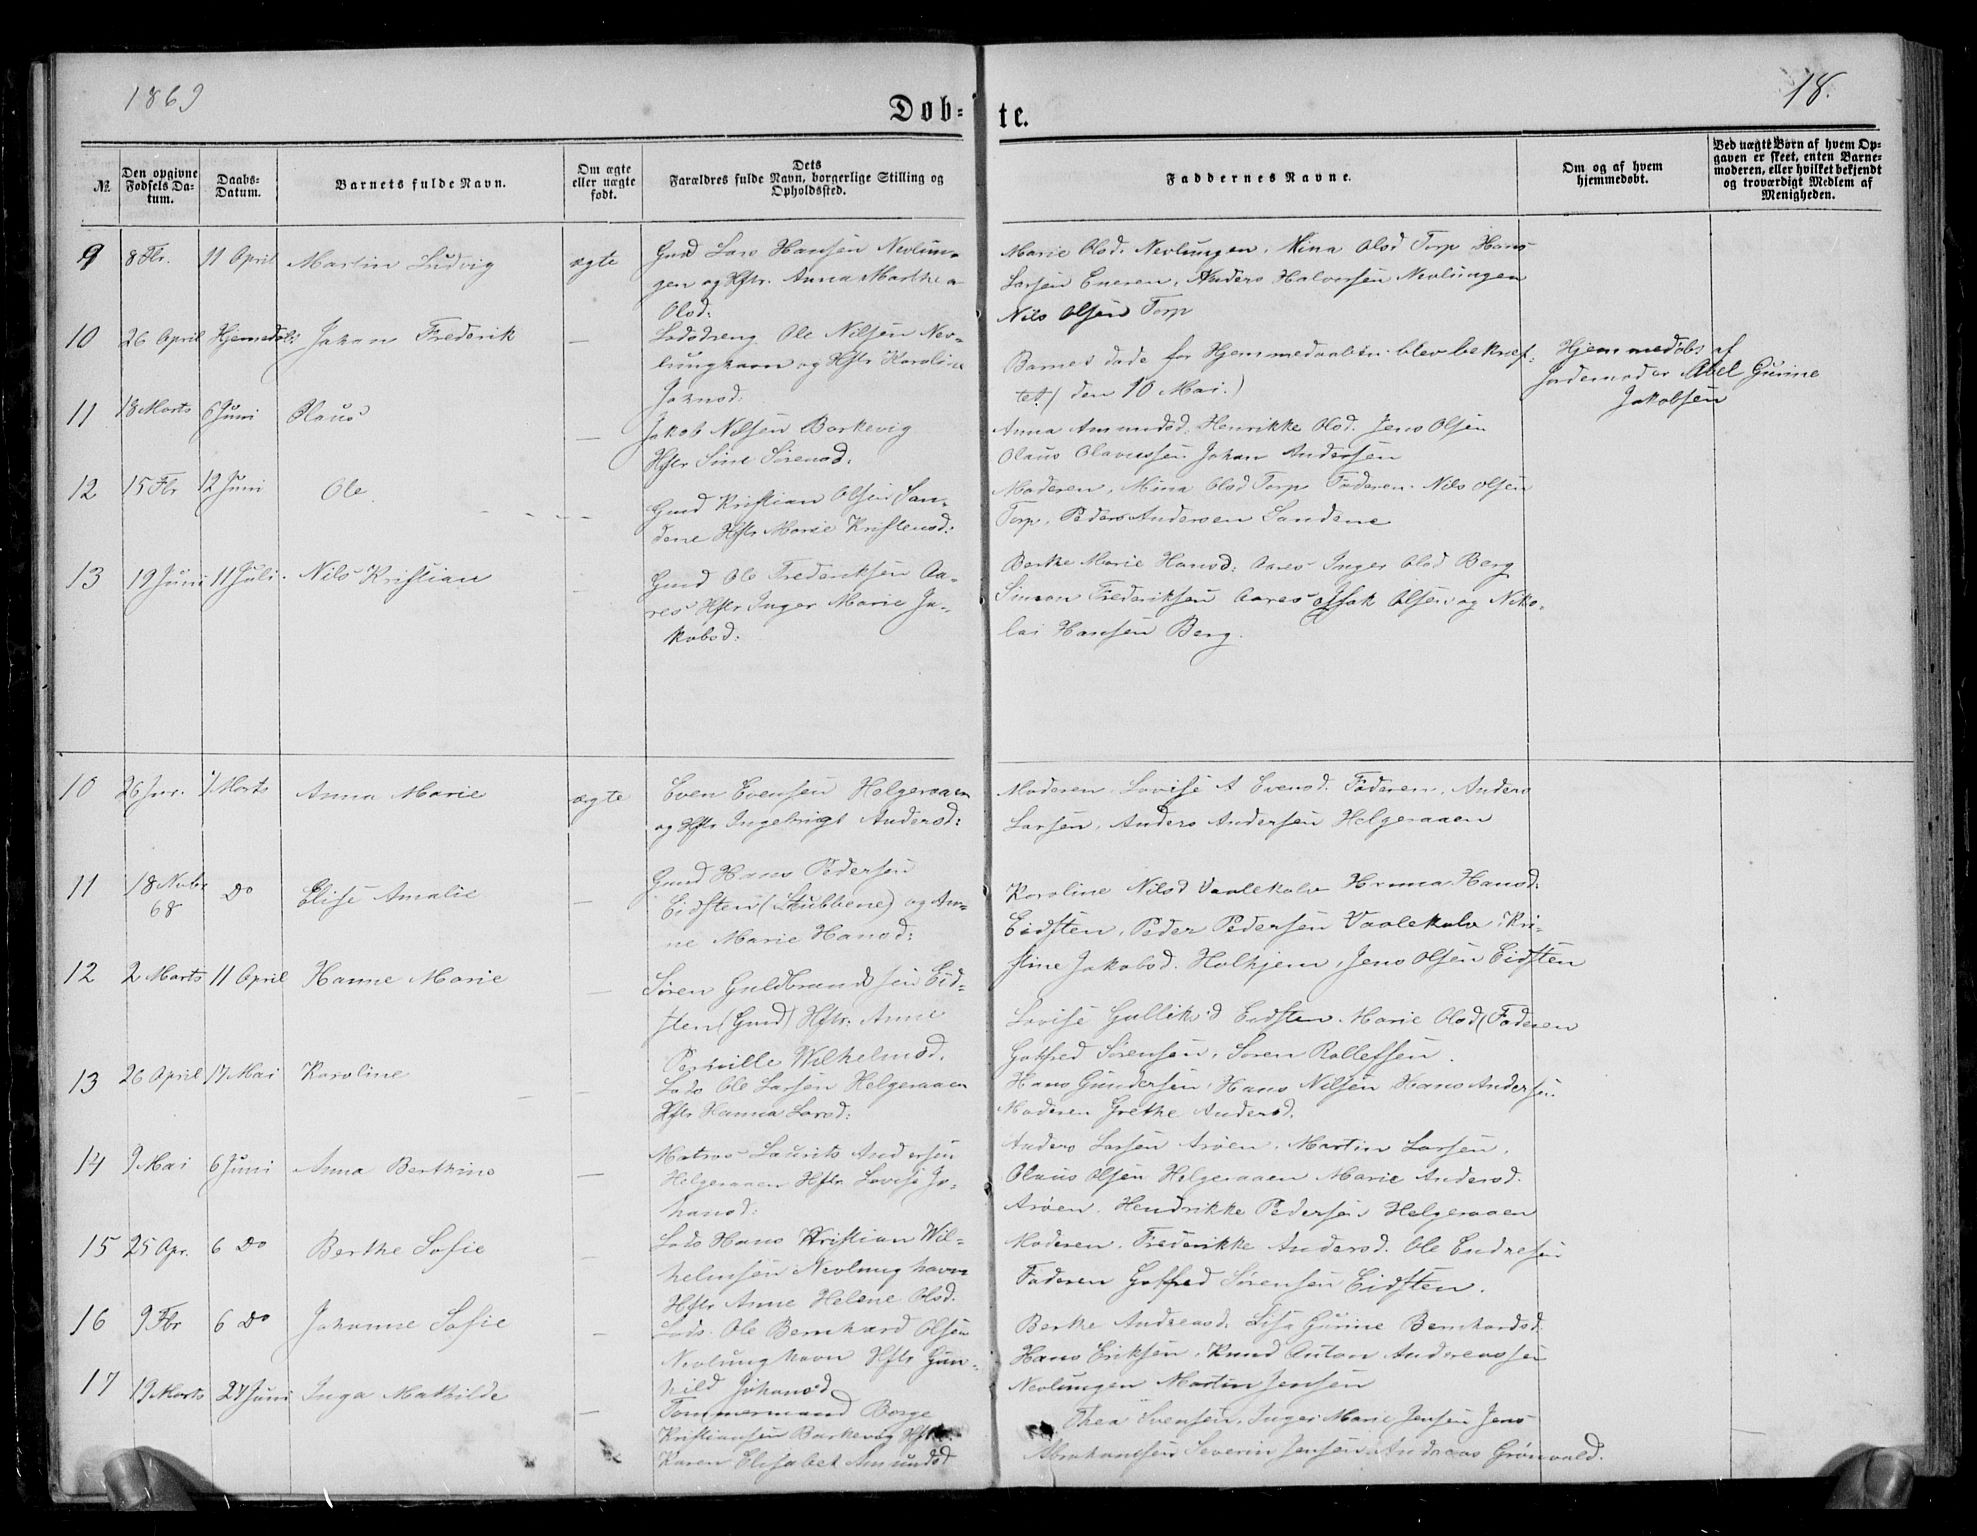 1869
18.
Døb-
te.
№
Den opgivne
Fødsels Da-
tum.
Daabs-
Datum.
Barnets fulde Navn.
Om ægte
eller uægte
født.
Dets
Forældres fulde Navn, borgerlige Stilling og
Opholdssted.
Faddernes Navne.
Om og af hvem
hjemmedøbt.
Ved uægte Børn af hvem Op-
gaven er skeet, enten Barne-
moderen, eller hvilket bekjendt
og troværdigt Medlem af
Menigheden.
9 8 Fbr. 11 April Martin Ludvig ægte
Gmd Lars Hansen Nevlun-
gen og Hstr. Anna Marthea
Olsd:
Marie Olsd. Nevlungen. Mina Olsd Torp Hans
Larsen Eneren, Anders Halvorsen Nevlungen
Nils Olsen Torp
10 26 April Hjemedøbt Johan Frederik —
Lodsdreng Ole Nilsen Nev-
lunghavn og Hstr Karoline
Johnsd:
Barnes dåde for Hjemmedaaben blev bekræf-
tet (den 10 Mai.)
Hjemmedøbt af
Jordemoder Abel Gurine
Jakobsen
11 18 Marts 6 Juni Olaus —
Jakob Nilsen Barkevig
Hstr Sine Sørensd.
Anna Amundsd. Henrikke Olsd. Jens Olsen
Olaus Olavessen Johan Andersen
12 15 Fbr 12 Juni Ole
Gmd Kristian Olsen San-
dene Hstr Marie Kristensd:
Moderen, Mina Olsd Torp Faderen. Nils Olsen
Torp. Peder Andersen Sandene
13 19 Juni 11 Juli. Nils Kristian
Gmd Ole Frederiksen Aa-
res Hstr Inger Marie Ja-
kobsd:
Berthe Marie Hansd: Aares Inger Olsd Berg
Simon Frederiksen Aares Isak Olsen og Niko-
lai Hansen Berg.
10 26 Jnr. 7 Marts Anna Marie ægte
Even Evensen Helgeraaen
og Hstr Ingebrigt Andersd:
Moderen Lovise A Evensd. Faderen, Anders
Larsen, Anders Andersen Helgeraaen
11 18 Novbr
68
Do Elise Amalie —
Gmd Hans Pedersen
Eidsten (Stubbene) og An-
ne Marie Hansd:
Karoline Nilsd Vaalekalv Hanna Hansd:
Eidsten, Peder Pedersen Vaalekalv, Kri-
stine Jakobsd. Halhjem, Jens Olsen Eidsten
12 2 Marts 11 April Hanne Marie —
Søren Guldbrandsen Eid-
sten (Gmd) Hstr. Anne
Pernille Wilhelmsd.
Lovise Gulliksd Eidsten. Marie Olsd (Faderen
Gotfred Sørensen, Søren Rollefsen.
13 26 April 17 Mai Karoline —
Lods Ole Larsen Helgeraaen
Hstr Hanna Larsd:
Hans Gundersen, Hans Nilsen Hans Andersen
Moderen Grethe Andersd.
14 9 Mai 6 Juni Anna Berthine —
Matros Laurits Andersen
Helgeraaen Hstr Lovise Jo-
hansd:
Anders Larsen Arøen. Martin Larsen.
Olaus Olsen Helgeraaen Marie Andersd.
Arøen. Hendrikke Pedersen Helgeraaen
15 25 Apr. 6 Do Berthe Sofie
Lods Hans Kristian Wil-
helmsen Nevlunghavn
Hstr Anne Helene Olsd.
Moderen. Frederikke Andersd. Ole Endresen
Faderen Gotfred Sørensen Eidsten.
16 9 Fbr 6 Do Johanne Sofie —
Lods. Ole Bernhard Olsen
Nevlunghavn Hstr Gun-
hild Johansd
Berthe Andreasd: Lisa Gurine Bernhardsd.
Hans Eriksen, Knud Anton Andreassen
Nevlungen Martin Jensen
17 19 Marts 27 Juni Inga Mathilde —
Tømmermand Børge
Kristiansen Barkevig Hstr
Karen Elisabet Amundsd
Thea Svensen, Inger Marie Jensen Jens
Abrahamsen Severin Jensen Andreas Grønvald.